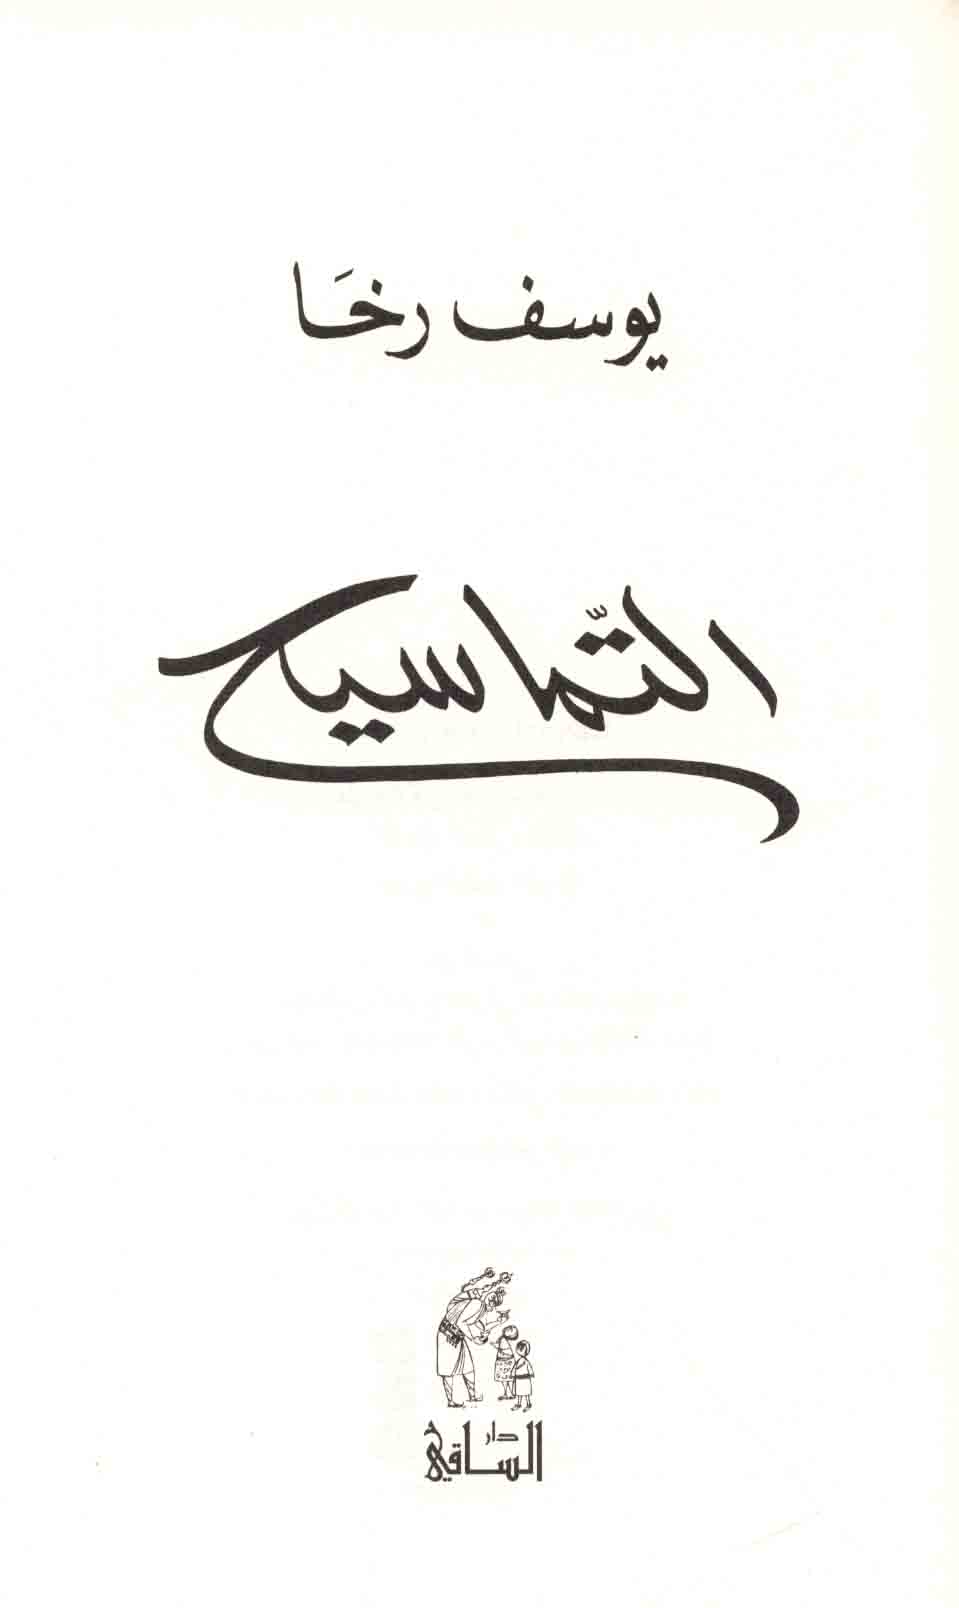 يوسف رخَا
التّماسيح
دار
الساقي